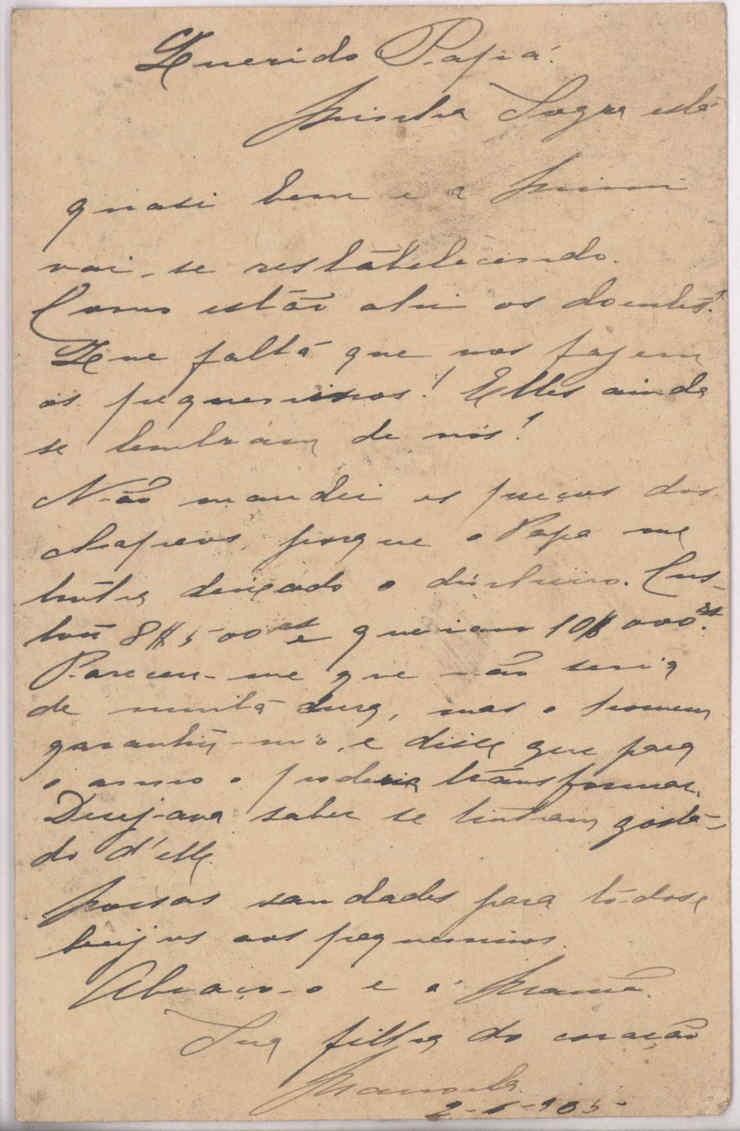 Querido Papá.
Minha Sogra está
quasi bem e a Mimi
vai-se restabelecendo.
Como estão ahi os doentes?
Que falta que nos fazem
os pequeninos! Elles ainda
se lembram de nós?
Não mandei os preços dos
chapeus, porque o Papá me
tinha deixado o dinheiro. Cus-
tou 8$500 rs e queriam 10$000 rs.
Pareceu-me que não seria
de muita dura, mas o homem
garantiu-m'o, e disse que para
o anno o poderia transformar.
Desejava saber se tinham gosta-
do d'elle.
Nossas saudades para todos e
beijos aos pequeninos.
Abraço-o e á Mamã.
Sua filha do coração
2-6-905